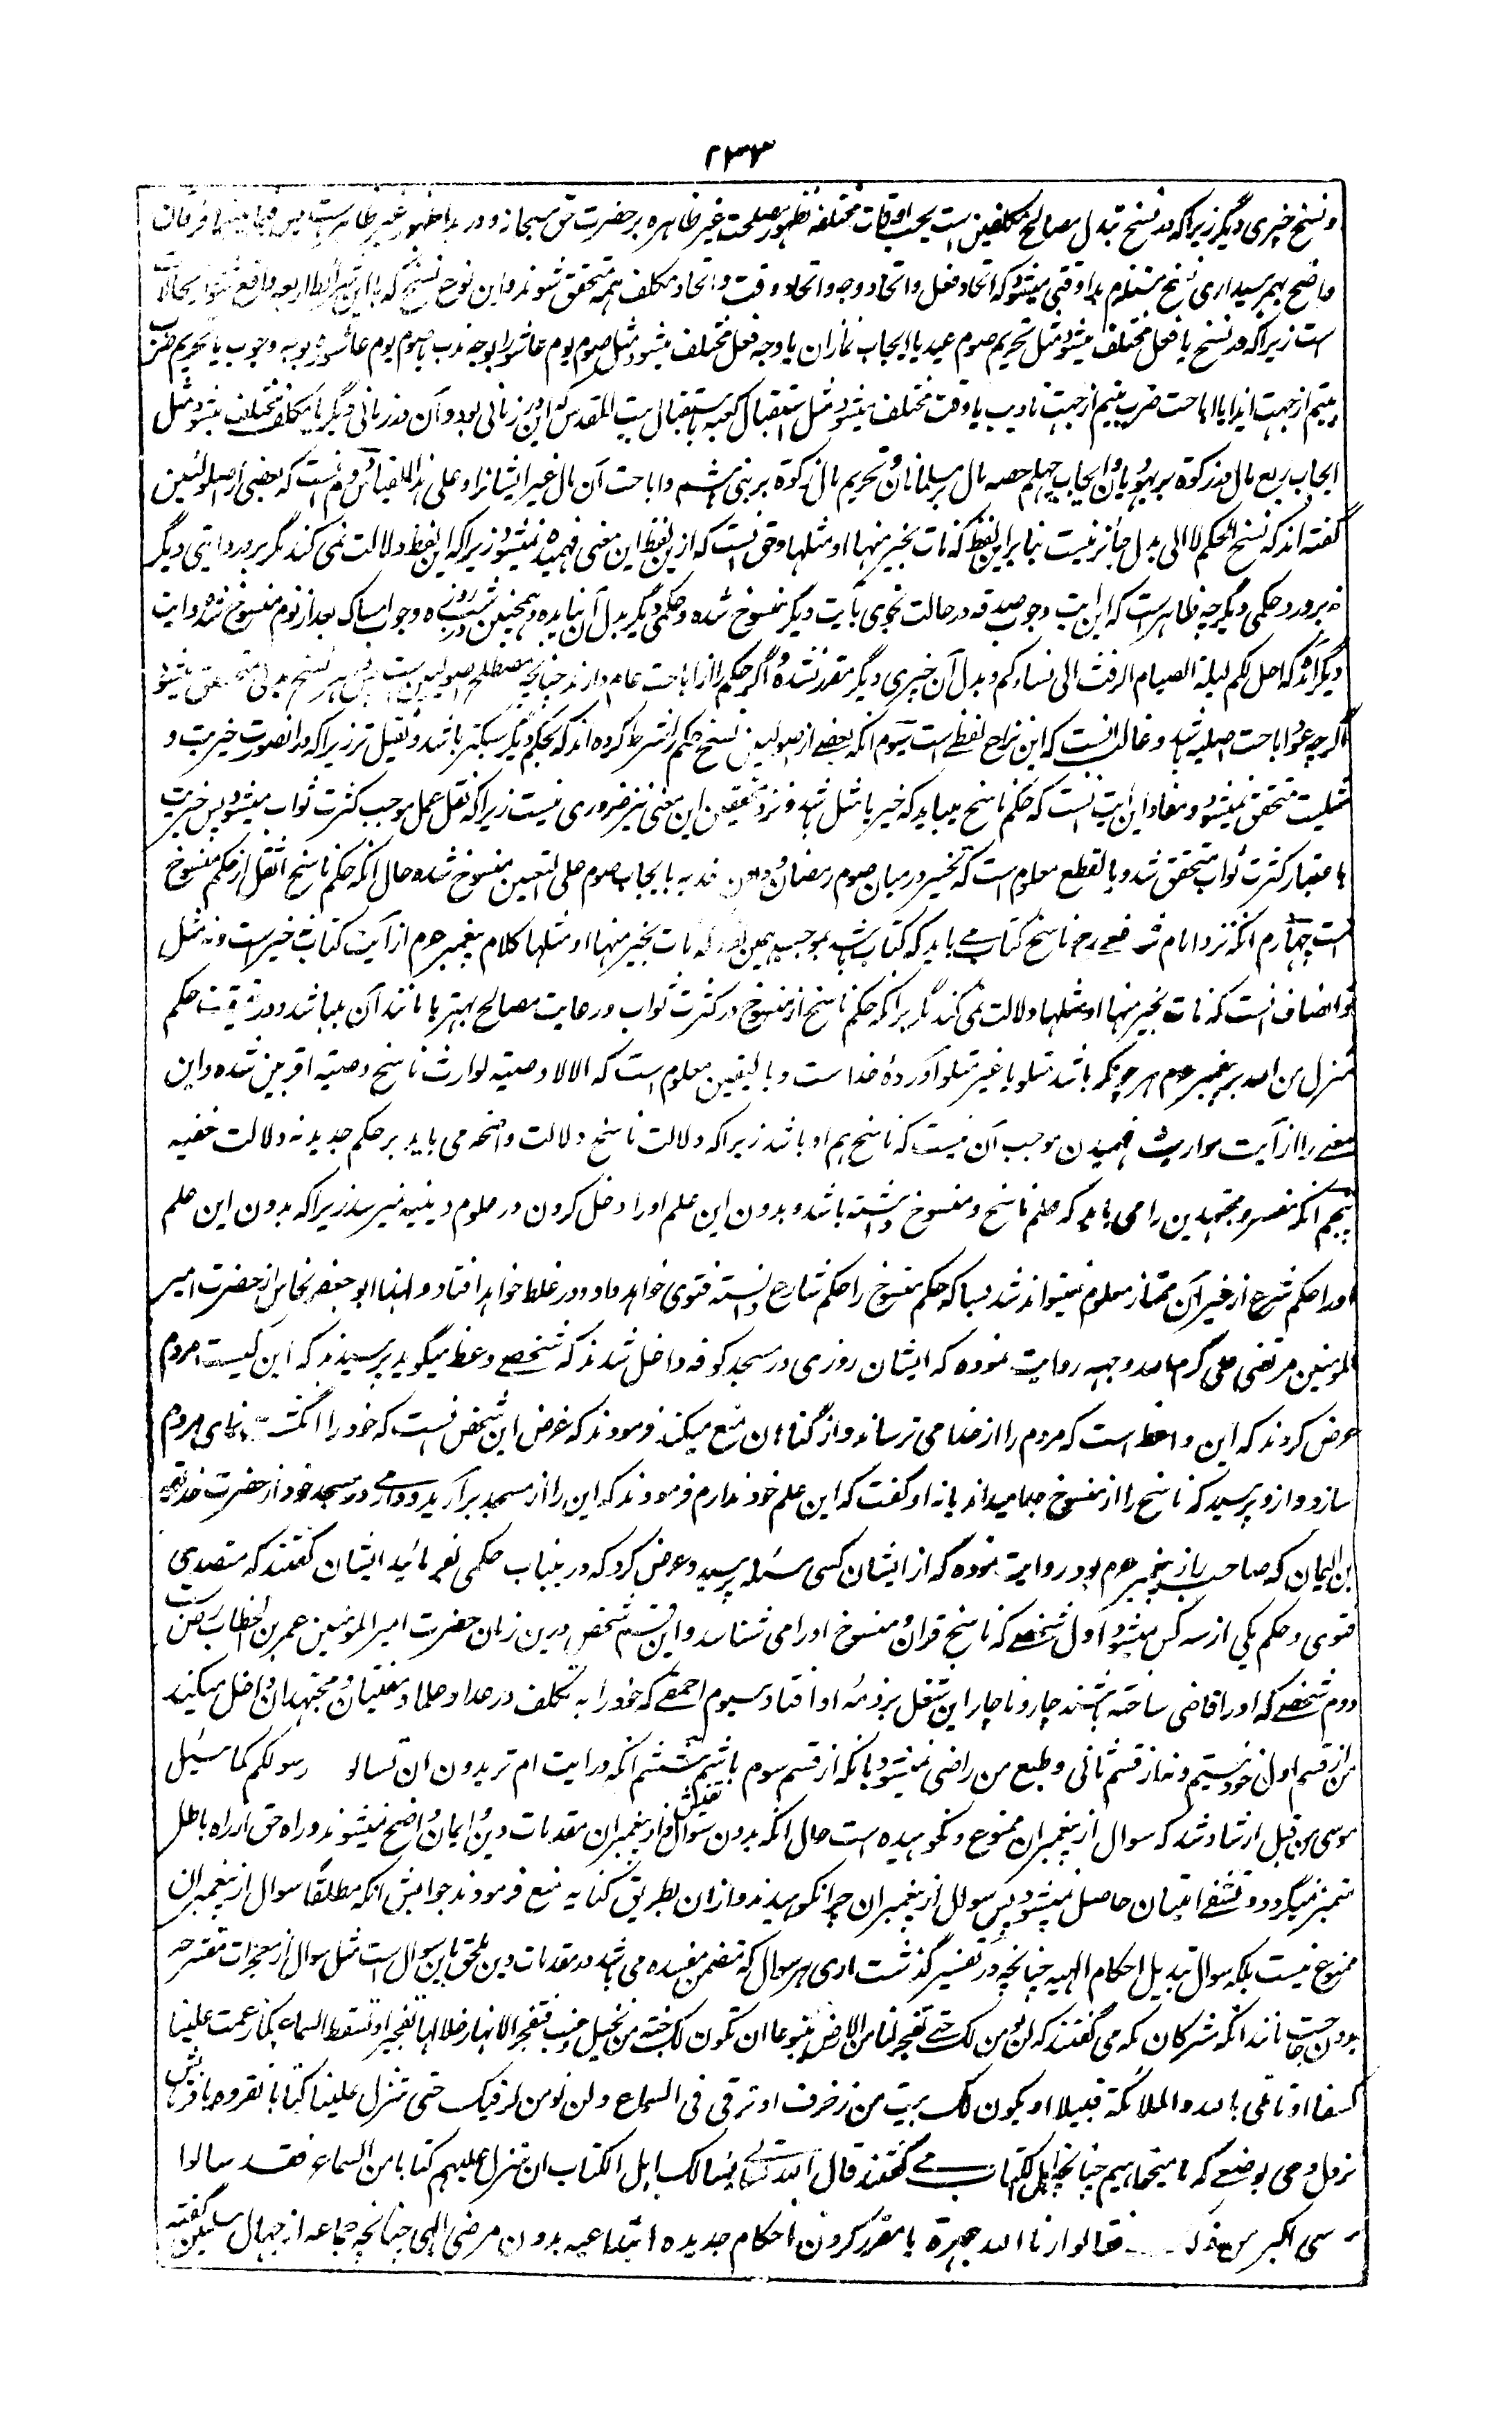 ۲۳۳
و نسخ خبری دیگر زیراکه در نسخ تبدل مصالح مکلفین است بحسب اوقات مختلفه نه ظهور مصلحت غیر ظاهره بر حضرت حق سبحانه و در بدا ظهور غیر ظاهر است پس فیما بینهما فرقان
واضح بهم رسید اری نسخ مستلزم بدا وقتی میشود که اتحاد فعل و اتحاد وجه و اتحاد وقت و اتحاد مکلف همه متحقق شوند و این نوع نسخ که با این شرائط اربعه واقع شود از محالات
است زیراکه در نسخ یا فعل مختلف میشود مثل تحریم صوم عید با ایجاب نماز آن یا وجه فعل مختلف میشود مثل صوم یوم عاشورا بوجه ندب با صوم یوم عاشورا بوجه وجوب یا تحریم ضرب
یتیم از جهت ایذا با اباحت ضرب یتیم از جهت تادیب یا وقت مختلف میشود مثل استقبال کعبه با استقبال بیت المقدس که این در زمانی بود و آن در زمانی دیگر یا مکلف مختلف میشود مثل
ایجاب ربع مال در زکوة بر یهودیان و ایجاب چهلم حصه مال بر مسلمانان و تحریم مال زکوة بر بنی هاشم و اباحت آن مال غیر ایشانرا و علی هذا القیاس دوم آنست که بعضی از اصولیین
گفته اند که نسخ الحکم لا الی بدل جائز نیست بنابر این لفظ که نات بخیر منها او مثلها و حق آنست که ازین لفظ این معنی فهمیده نمیشود زیراکه این لفظ دلالت نمی کند مگر بر ورود آیتی دیگر
نه بر ورود حکمی دیگر چه ظاهر است که این آیت وجوب صدقه در حالت نجوی بآیت دیگر منسوخ شده و حکمی دیگر بدل آن نیامده و همچنین در شب روزه وجوب امساک بعد از نوم منسوخ شده و آیت
دیگر آمده که احل لکم لیلة الصیام الرفث الی نساءکم و بدل آن خبری دیگر مقرر نشده و اگر حکم را از اباحت عام دارند چنانچه مصطلح اصولیین است پس هر نسخ بدلی متحقق میشود
اگرچه عود اباحت اصلیه باشد و غالب آنست که این نزاع لفظی است سیوم آنکه بعضی از اصولیین نسخ حکم را شرط کرده اند که بحکم دیگر سبکتر باشد نه ثقیل تر زیراکه در انصورت خیریت و
مثلیت متحقق نمیشود و مفاد این آیت آنست که حکم ناسخ میباید که خیر یا مثل باشد و نزد محققین این معنی نیز ضروری نیست زیراکه ثقل عمل موجب کثرت ثواب میشود پس خیریت
باعتبار کثرت ثواب متحقق شد و بالقطع معلوم است که تخییر درمیان صوم رمضان و دادن فدیه بایجاب صوم علی التعیین منسوخ شده حال آنکه حکم ناسخ اثقل از حکم منسوخ
است چهارم آنکه نزد امام شافعی رح ناسخ کتاب می باید که کتاب باشد بموجب همین لفظ که نات بخیر منها او مثلها کلام پیغمبر عم از آیت کتاب نه خیر است و نه مثل
و انصاف آنست که نات بخیر منها او مثلها دلالت نمی کند مگر برانکه حکم ناسخ از منسوخ در کثرت ثواب و رعایت مصالح بهتر یا مانند آن میباشد و در حقیقت حکم
منزل من الله بر پیغمبر عم هرچونکه باشد متلو یا غیر متلو آوردهٔ خداست و بالیقین معلوم است که الا لا وصیة لوارث ناسخ وصیة اقربین شده و این
معنے را از آیت مواریث فهمیدن موجب آن نیست که ناسخ هم او باشد زیراکه دلالت ناسخ دلالت واضحه می باید بر حکم جدید نه دلالت خفیه
پنجم آنکه مفسر و مجتهدین را می باید که علم ناسخ و منسوخ داشته باشد و بدون این علم اورا دخل کردن در علوم دینیه نمیرسد زیراکه بدون این علم
اورا حکم شرع از غیر آن ممتاز معلوم نمیتواند شد بسا که حکم منسوخ را حکم شارع دانسته فتوی خواهد داد و در غلط خواهد افتاد و لهذا ابو جعفر نحاس از حضرت امیر
المومنین مرتضی علی کرم الله وجهه روایت نموده که ایشان روزی در مسجد کوفه داخل شدند که شخصے وعظ میگوید پرسیدند که این کیست مردم
عرض کردند که این واعظ است که مردم را از خدا می ترساند و از گناهان منع میکند فرمودند که غرض این شخص آنست که خود را انگشت نمای مردم
سازد و ازو پرسید که ناسخ را از منسوخ جدا میداند یا نه او گفت که این علم خود ندارم فرمودند که این را از مسجد برآرید و دارمی در مسند خود از حضرت حذیفه
بن الیمان که صاحب راز پیغمبر عم بود روایت نموده که از ایشان کسی مسئله پرسید و عرض کرد که درینباب حکمی بفرمائید ایشان گفتند که متصدی
فتوی و حکم یکی از سه کس میشود اول شخصے که ناسخ قران و منسوخ اورا می شناسد و این قسم شخص درین زمان حضرت امیر المومنین عمر بن الخطاب رض است
دوم شخصے که اورا قاضی ساخته باشند چار و ناچار این شغل بر ذمهٔ او افتاد سیوم احمقے که خود را به تکلف در عداد علما و مفتیان و مجتهدان داخل میکند
من از قسم اول خود نیستم و نه از قسم ثانی و طبع من راضی نمیشود بانکه از قسم سوم باشم ششم آنکه در آیت ام تریدون ان تسالوا رسولکم کما سئل
موسی من قبل ارشاد شد که سوال از پیغمبران ممنوع و نکوهیده است حال آنکه بدون سوال و تفتیش از پیغمبران مقدمات دین و ایمان واضح نمیشوند و راه حق از راه باطل
متمیز نمیگردد و تشفی امتیان حاصل نمیشود پس سوال از پیغمبران چرا نکوهیدند و ازان بطریق کنایه منع فرمودند جوابش آنکه مطلقا سوال از پیغمبران
ممنوع نیست بلکه سوال تبدیل احکام الهیه چنانچه در تفسیر گذشت اری هر سوال که متضمن مفسده می باشد در مقدمات دین ملحق باین سوال است مثل سوال از معجزات مقترحه
بدون حاجت مانند آنکه مشرکان مکه می گفتند که لن نومن لک حتی تفجر لنا من الارض ینبوعا او تکون لک جنة من نخیل و عنب فتفجر الانهار خلالها تفجیرا او تسقط السماء کما زعمت علینا
کسفا او تاتی بالله و الملائکة قبیلا او یکون لک بیت من زخرف او ترقی فی السماء و لن نومن لرقیک حتی تنزل علینا کتابا نقروه یا فرمایش
نزول وحی بوضعے که ما میخواهیم چنانچه اهل الکتاب می گفتند قال الله تعالے یسالک اهل الکتاب ان تنزل علیهم کتابا من السماء فقد سالوا
موسی اکبر من ذلک فقالوا ارنا الله جهرة یا مقرر کردن احکام جدیده ابتداعیه بدون مرضی الهی چنانچه جماعه از جهال مسلمین گفته